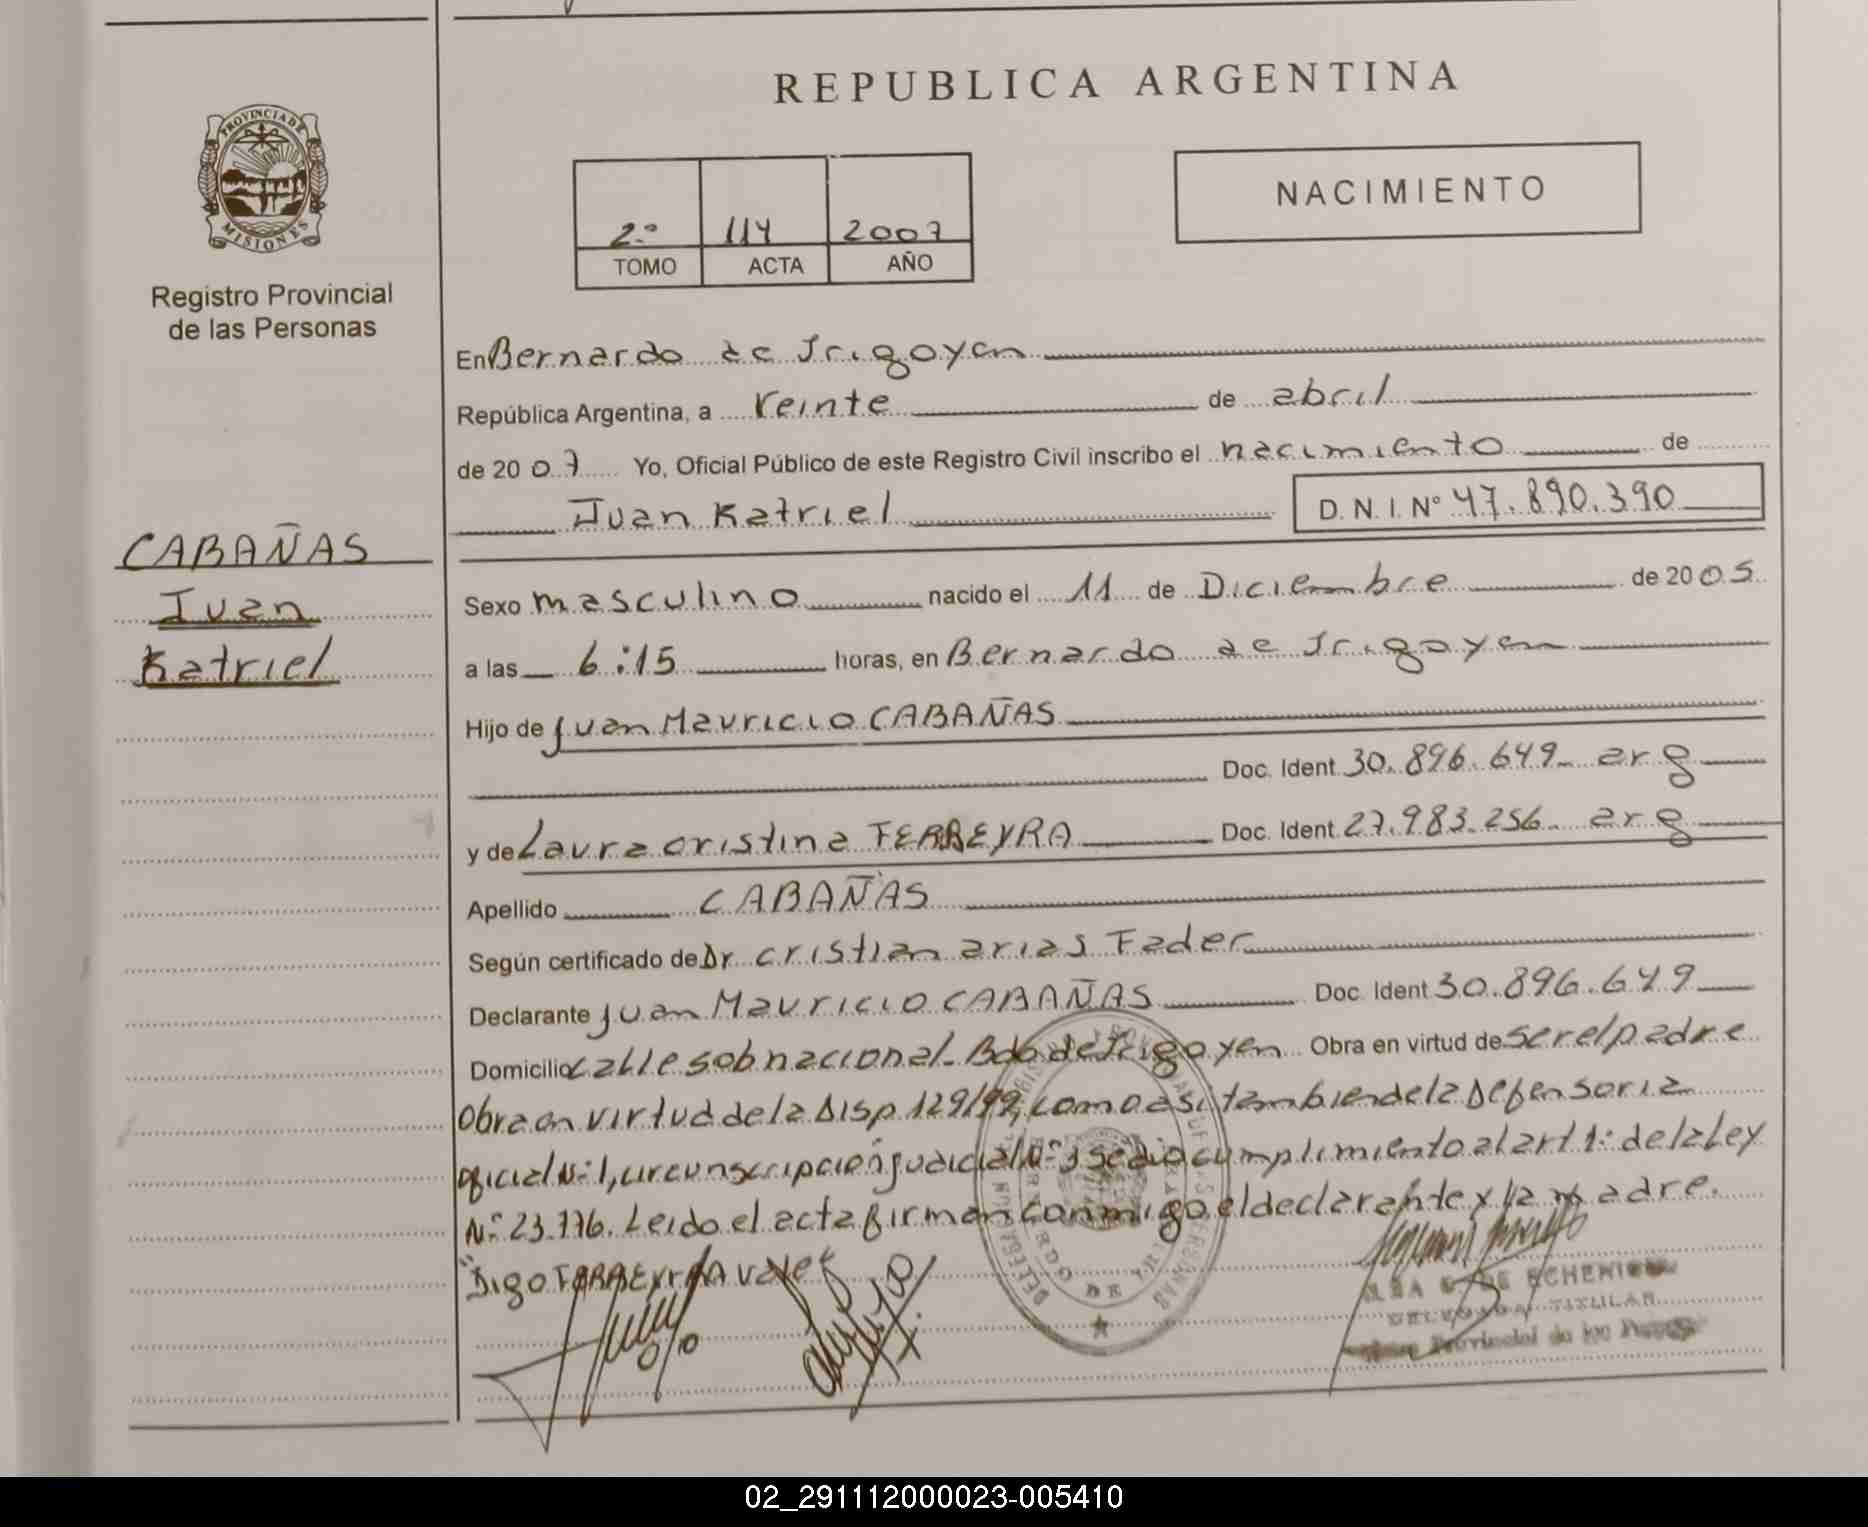 REPUBLICA ARGENTINA
PROVINCIA DE
MISIONES
Registro Provincial
de las Personas
2º 114 2007
TOMO ACTA AÑO
NACIMIENTO
En Bernardo de Irigoyen
República Argentina, a veinte de abril
de 2007 Yo, Oficial Público de este Registro Civil inscribo el nacimiento de
Juan Katriel D.N.I. Nº 47.890.390
CABAÑAS
Juan
Katriel
Sexo masculino nacido el 11 de Diciembre de 2005
a las 6:15 horas, en Bernardo de Irigoyen
Hijo de Juan Mauricio CABAÑAS
Doc. Ident. 30.896.649_ arg
y de Laura cristina FERREYRA Doc. Ident. 27.983.256_ arg
Apellido CABAÑAS
Según certificado de Dr cristian arias Fader
Declarante Juan Mauricio CABAÑAS Doc. Ident 30.896.649
Domicilio calle sob nacional_ Bdo de Irigoyen Obra en virtud de ser el padre
Obra en virtud de la Disp 129/99, como asi tambien de la Defensoria
oficial Nº 1, circunscripción judicial Nº 3 se dio cumplimiento al art 1º de la Ley
Nº 23.776. Leido el acta firman conmigo el declarante y la madre.
"Digo FERREYRA Vale"
DE ECHENIQUE
DELEGADA TITULAR
Provincial de las
02_291112000023-005410